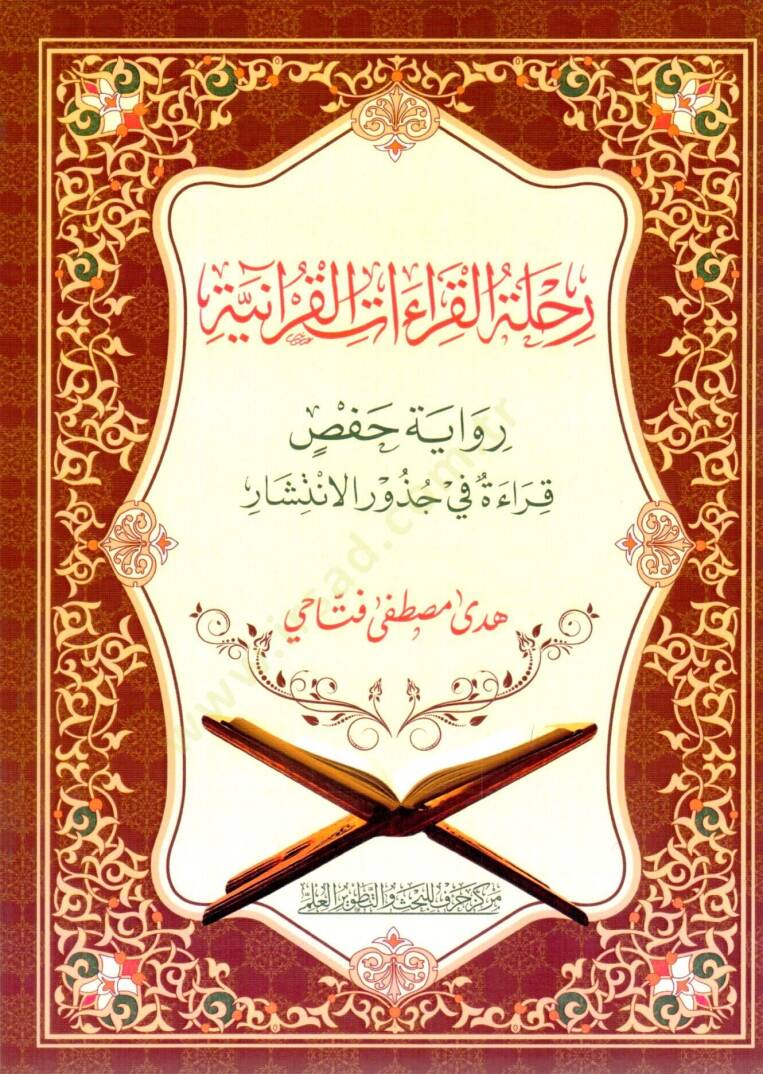 رِحْلَةُ القِرَاءَاتِ القُرْآنِيَّةِ
رِوَايَة حَفْصٍ
قِرَاءَةٌ فِي جُذُورِ الانْتِشَارِ
هدى مصطفى فتّاحي
مَركز حَرف للبَحث وَالتَّطوير العِلمي